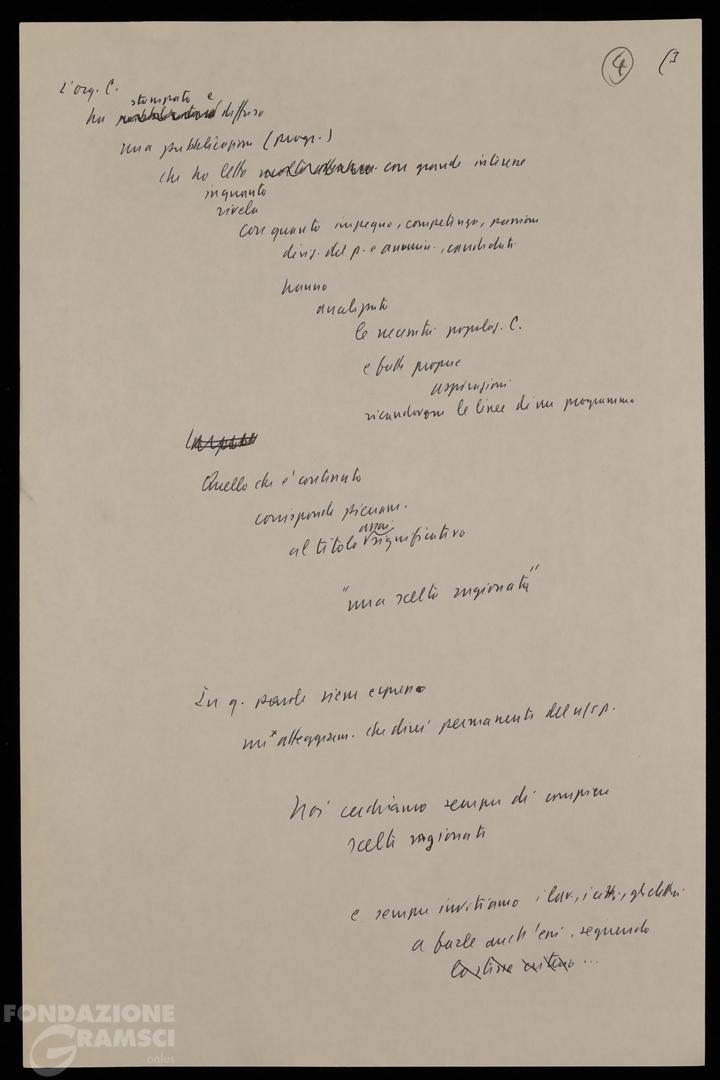 4
(3
L'org. C.
stampato e
ha diffuso
una pubblicazione (progr.)
che ho letto con grande interesse
inquanto
rivela
con quanto impegno, competenza, passione
dirig. del p. e ammin., candidati
hanno
analizzato
le necessità popolaz. C.
e fatte proprie
aspirazioni
ricavandone le linee di un programma
Quello che è contenuto
corrisponde pienam.
assai
al titolo significativo
"una scelta ragionata"
In q. parole viene espresso
un atteggiam. che direi permanente del n/s p.
Noi cerchiamo sempre di compiere
scelte ragionate
e sempre invitiamo i lav., i citt., gli elettori
a farle anch'essi, seguendo
lo stesso criterio ...
FONDAZIONE
GRAMSCI
onlus